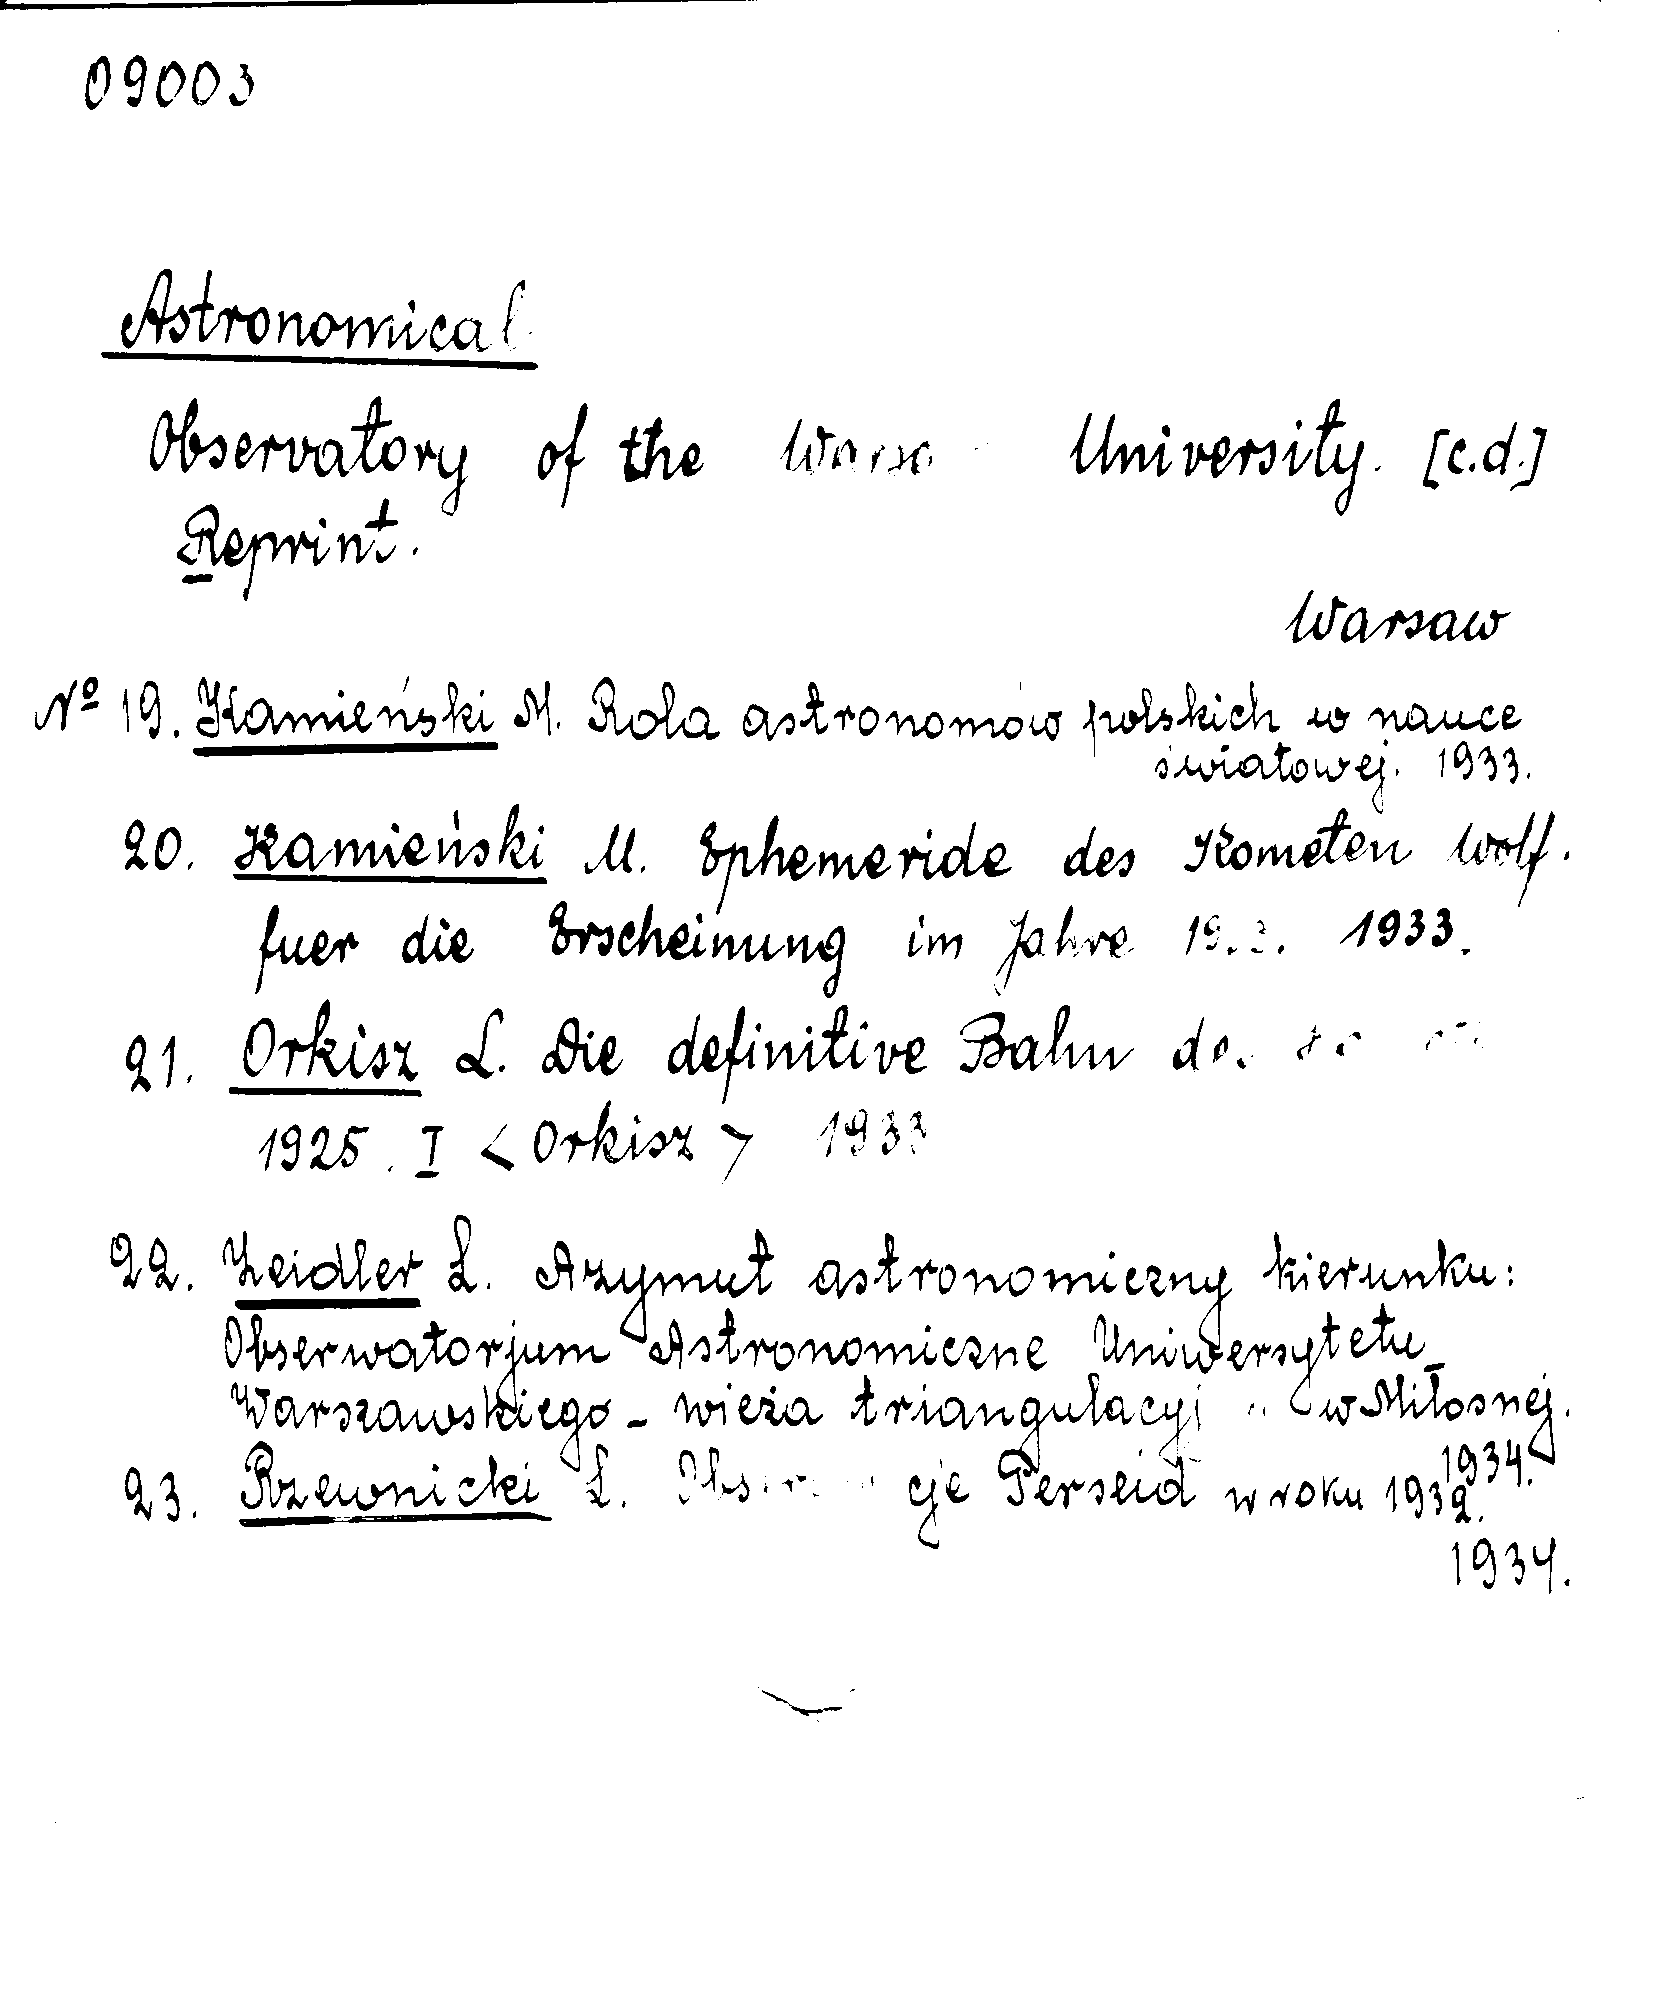 09003
Astronomical
Observatory of the University. [c.d.]
Reprint.
Warsaw
Nº 19. Kamieński M. Rola astronomów polskich w nauce
światowej. 1933.
20. Kamieński M. Ephemeride des Kometen Wolf.
fuer die Erscheinung im Jahre 1933.
21. Orkisz L. Die definitive Bahn
1925. I < Orkisz > 1933
22. Zeidler L. Azymut astronomiczny kierunku:
Obserwatorjum Astronomiczne Uniwersytetu
Warszawskiego - wieża w Miłosnej.
1934.
23. Rzewnicki L. Perseid w roku 1932.
1934.